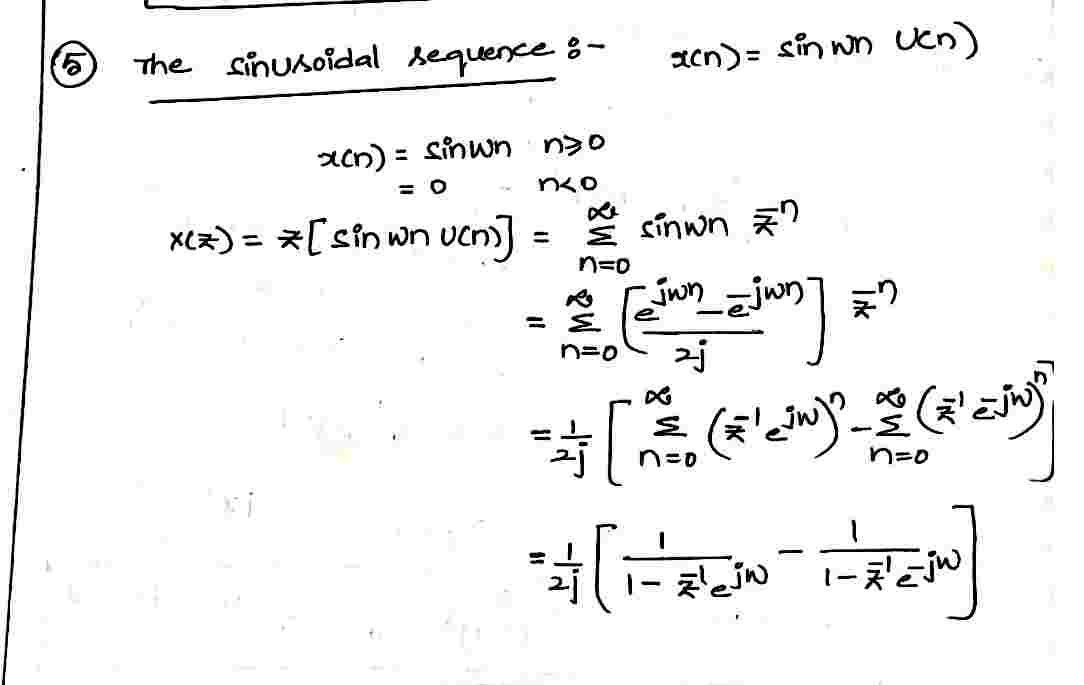 ⑤ The sinusoidal sequence :- x(n) = sin wn U(n)
x(n) = sin wn n ≥ 0
= 0 n < 0
X(z) = z[sin wn U(n)] = ∑_{n=0}^{∞} sin wn z^{-n}
= ∑_{n=0}^{∞} [(e^{jwn} - e^{-jwn})/2j] z^{-n}
= 1/2j [∑_{n=0}^{∞} (z^{-1} e^{jw})^n - ∑_{n=0}^{∞} (z^{-1} e^{-jw})^n]
= 1/2j [1/(1 - z^{-1} e^{jw}) - 1/(1 - z^{-1} e^{-jw})]